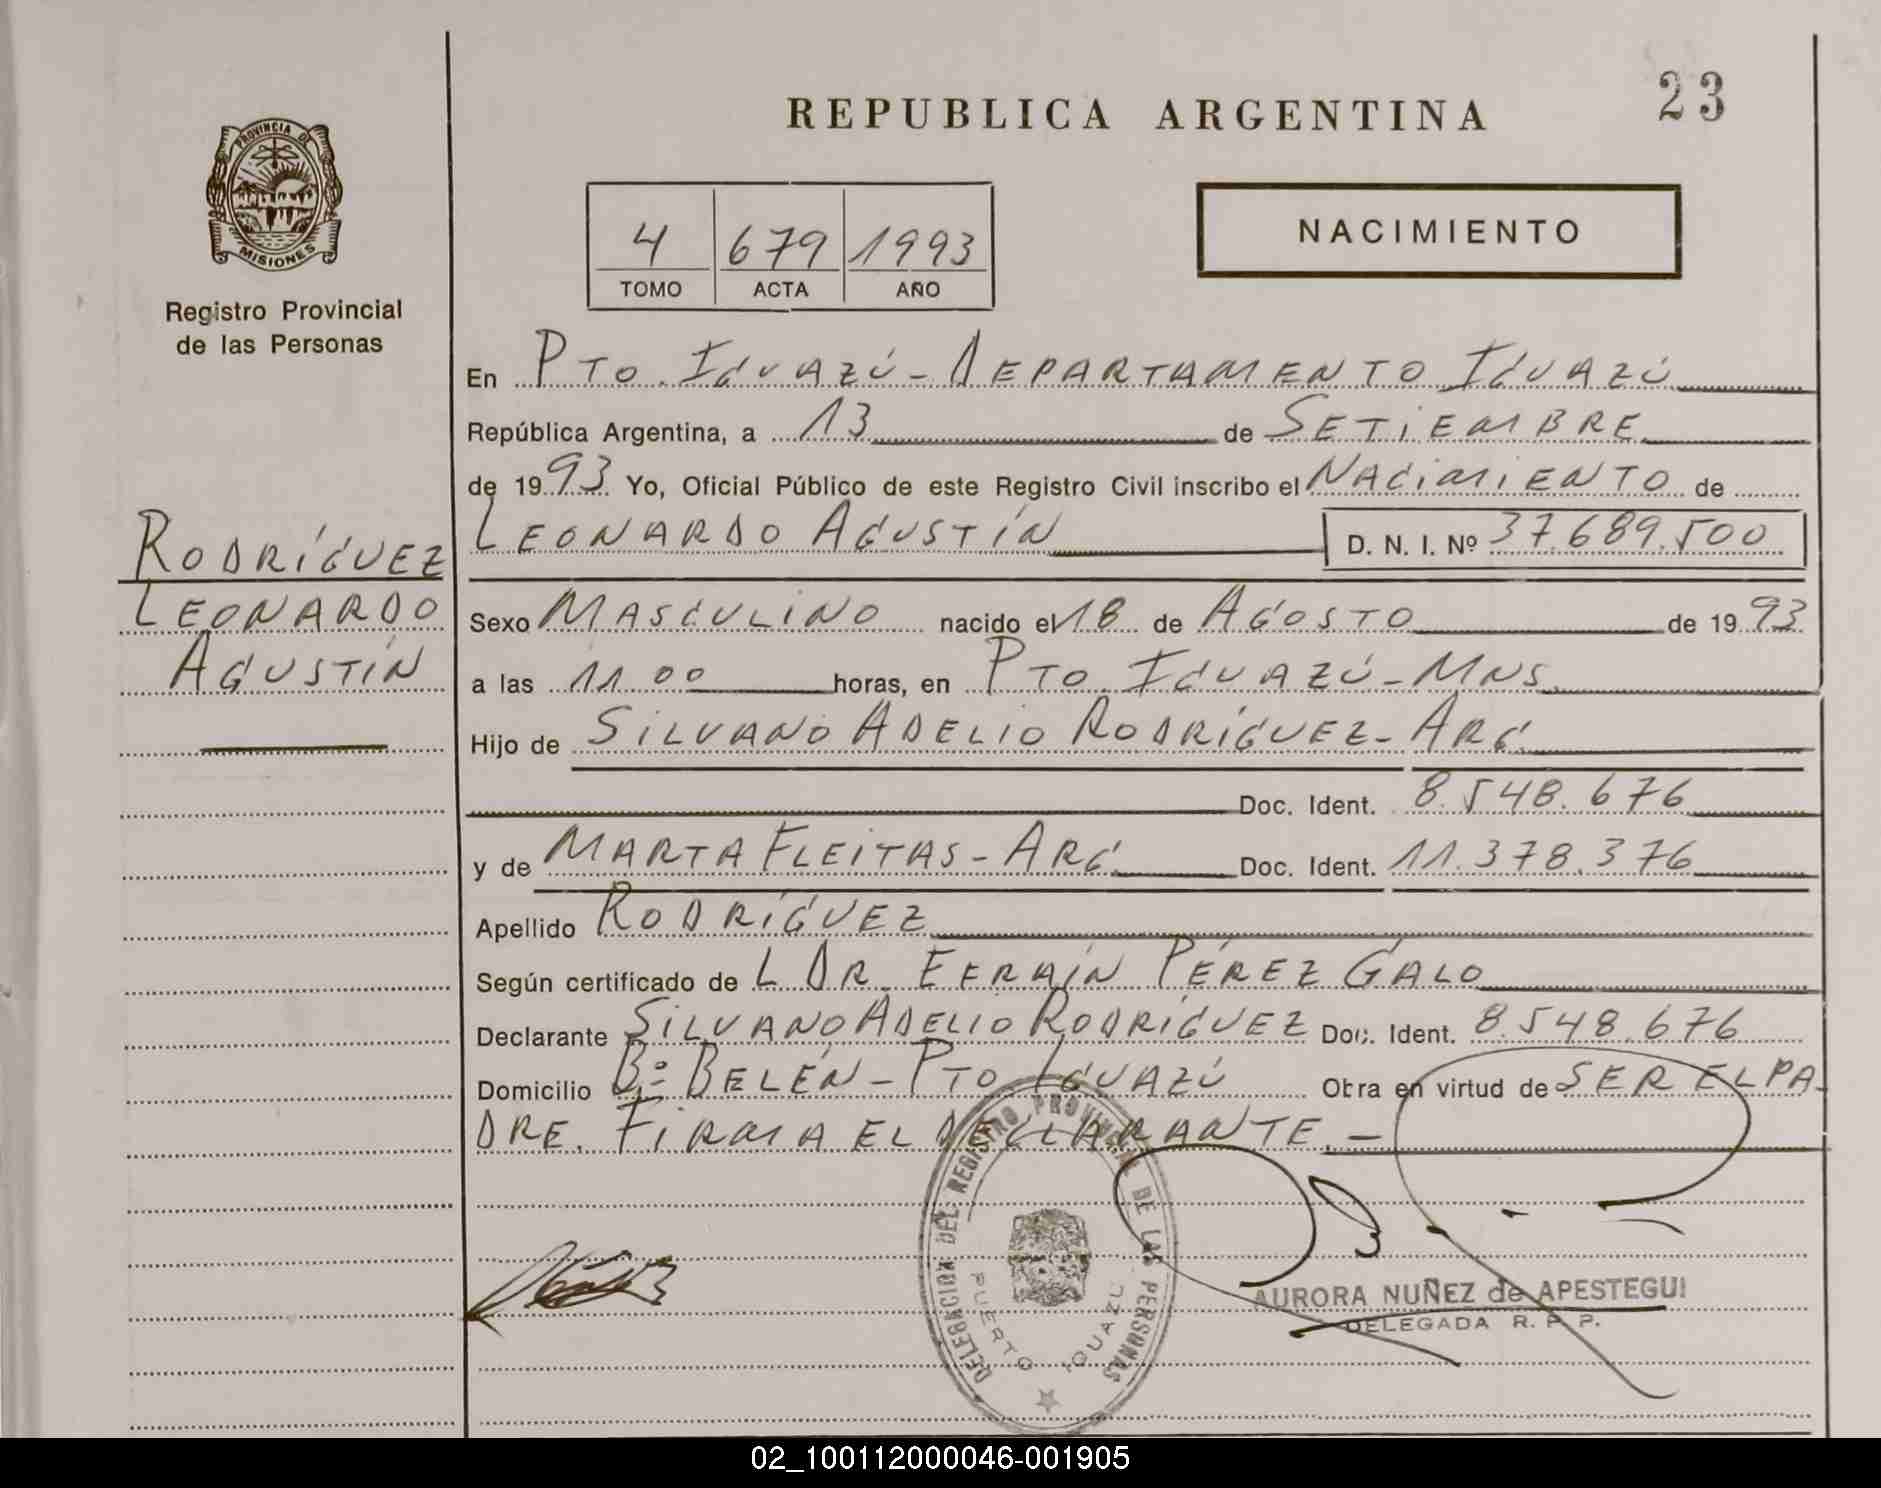 REPUBLICA ARGENTINA
23
PROVINCIA DE
MISIONES
Registro Provincial
de las Personas
4 679 1993
TOMO ACTA AÑO
NACIMIENTO
En PTO. IGUAZÚ - DEPARTAMENTO IGUAZÚ
República Argentina, a 13 de SETIEMBRE
de 1993 Yo, Oficial Público de este Registro Civil inscribo el NACIMIENTO de
LEONARDO AGUSTÍN D. N. I. Nº 37.689.500
RODRÍGUEZ
LEONARDO
AGUSTÍN
Sexo MASCULINO nacido el 18 de AGOSTO de 1993
a las 11 00 horas, en PTO IGUAZÚ - MNS.
Hijo de SILVANO ADELIO RODRÍGUEZ - ARG.
Doc. Ident. 8.548.676
y de MARTA FLEITAS - ARG. Doc. Ident. 11.378.376
Apellido RODRÍGUEZ
Según certificado de L DR. EFRAÍN PÉREZ GALO
Declarante SILVANO ADELIO RODRÍGUEZ Doc. Ident. 8.548.676
Domicilio Bº BELÉN - PTO IGUAZÚ Obra en virtud de SER EL PA-
DRE. FIRMA EL DECLARANTE. -
DELEGACION DEL REGISTRO PROVINCIAL DE LAS PERSONAS
PUERTO IGUAZU
AURORA NUÑEZ de APESTEGUI
DELEGADA R. P. P.
02_100112000046-001905